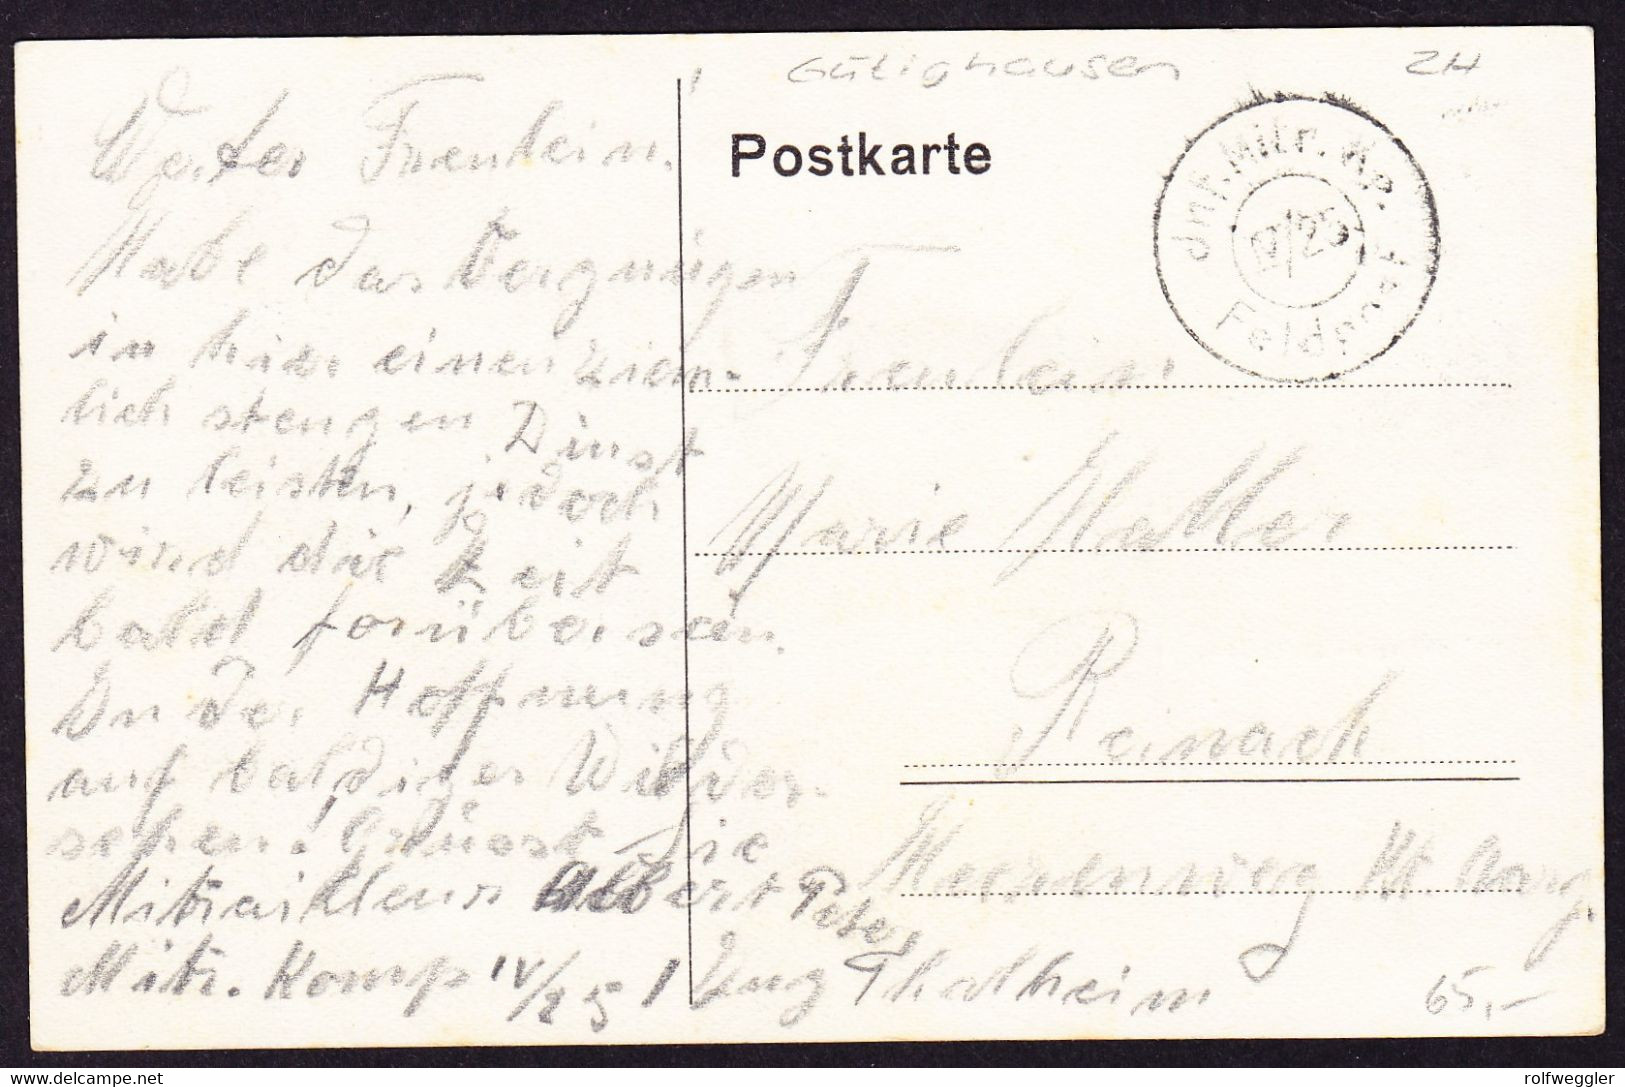 Gütighausen ZH
Postkarte
Inf. Mitr. Kp.
IV/25
Feldpost
Werter Freulein.
Habe das Vergnügen
in hier einen ziem-
lich stengen Dinst
zu leisten, jedoch
wird die Zeit
bald forüber sein.
In der Hoffnung
auf baldiger Wilder-
sehen! Grüsst Sie
Mitrailleur Albert Peter
Mitr. Komp IV/25 1 Zug Thalheim
Freulein
Marie Haller
Reinach
Kt. Aarg.
65,-
delcampe.net
rolfweggler